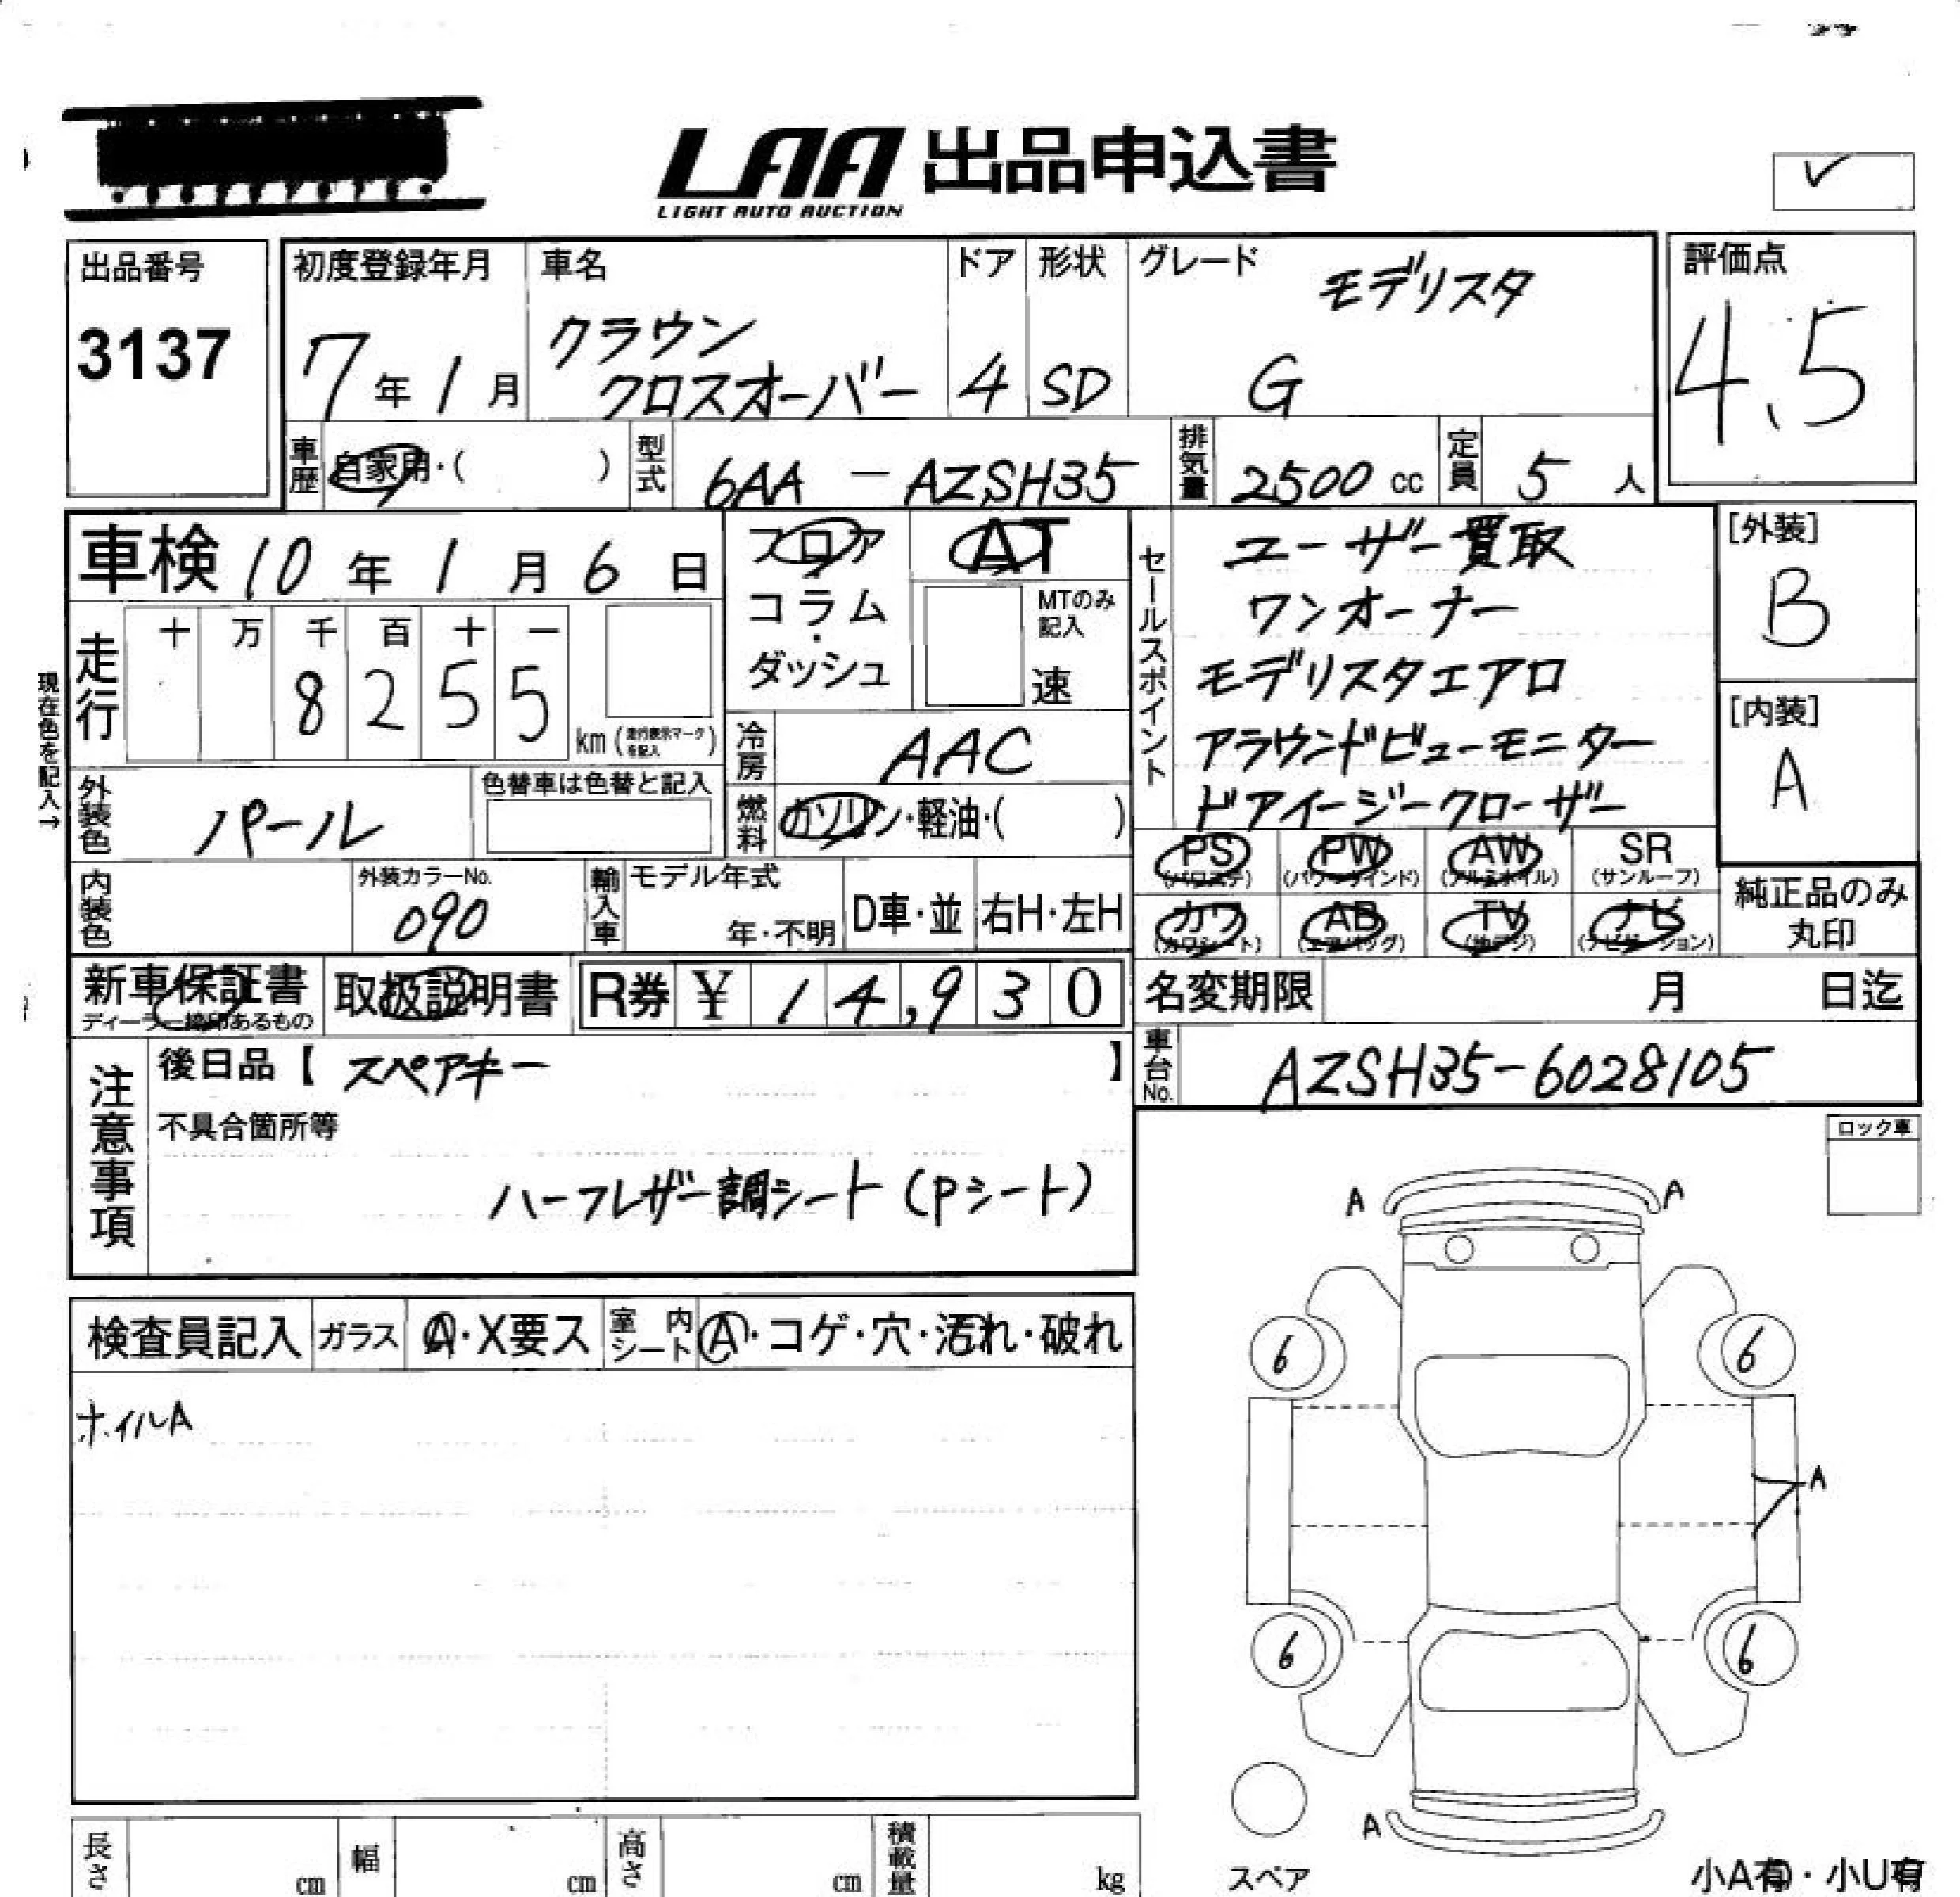 LAA 出品申込書
LIGHT AUTO AUCTION
出品番号
3137
初度登録年月
7年1月
車名
クラウン
クロスオーバー
ドア
4
形状
SD
グレード
モデリスタ
G
評価点
4.5
車歴 自家用・( )
型式 6AA-AZSH35
排気量 2500cc
定員 5人
車検 10年1月6日
フロア
コラム
・
ダッシュ
AT
MTのみ
記入
速
セールスポイント
ユーザー買取
ワンオーナー
モデリスタエアロ
アラウンドビューモニター
ドアイージークローザー
[外装]
B
[内装]
A
現在色を記入→
走行
十 万 千 百 十 一
8 2 5 5
km(走行表示マークを記入)
冷房 AAC
外装色 パール
色替車は色替と記入
燃料 ガソリン・軽油・( )
内装色
外装カラーNo.
090
輸入車
モデル年式
年・不明
D車・並
右H・左H
PS PW AW SR
(パワステ) (パワーウインド) (アルミホイル) (サンルーフ)
カワ AB TV ナビ
(カワシート) (エアバッグ) (地デジ) (ナビゲーション)
純正品のみ
丸印
新車保証書
ディーラー捺印あるもの
取扱説明書
R券 ¥ 14,930
名変期限 月 日迄
車台No. AZSH35-6028105
注意事項
後日品【 スペアキー 】
不具合箇所等
ハーフレザー調シート(Pシート)
ロック車
検査員記入
ガラス A・X要ス
室内シート A・コゲ・穴・汚れ・破れ
ホイルA
A A
6 6
A
6 6
A
スペア
小A有・小U有
長さ cm
幅 cm
高さ cm
積載量 kg